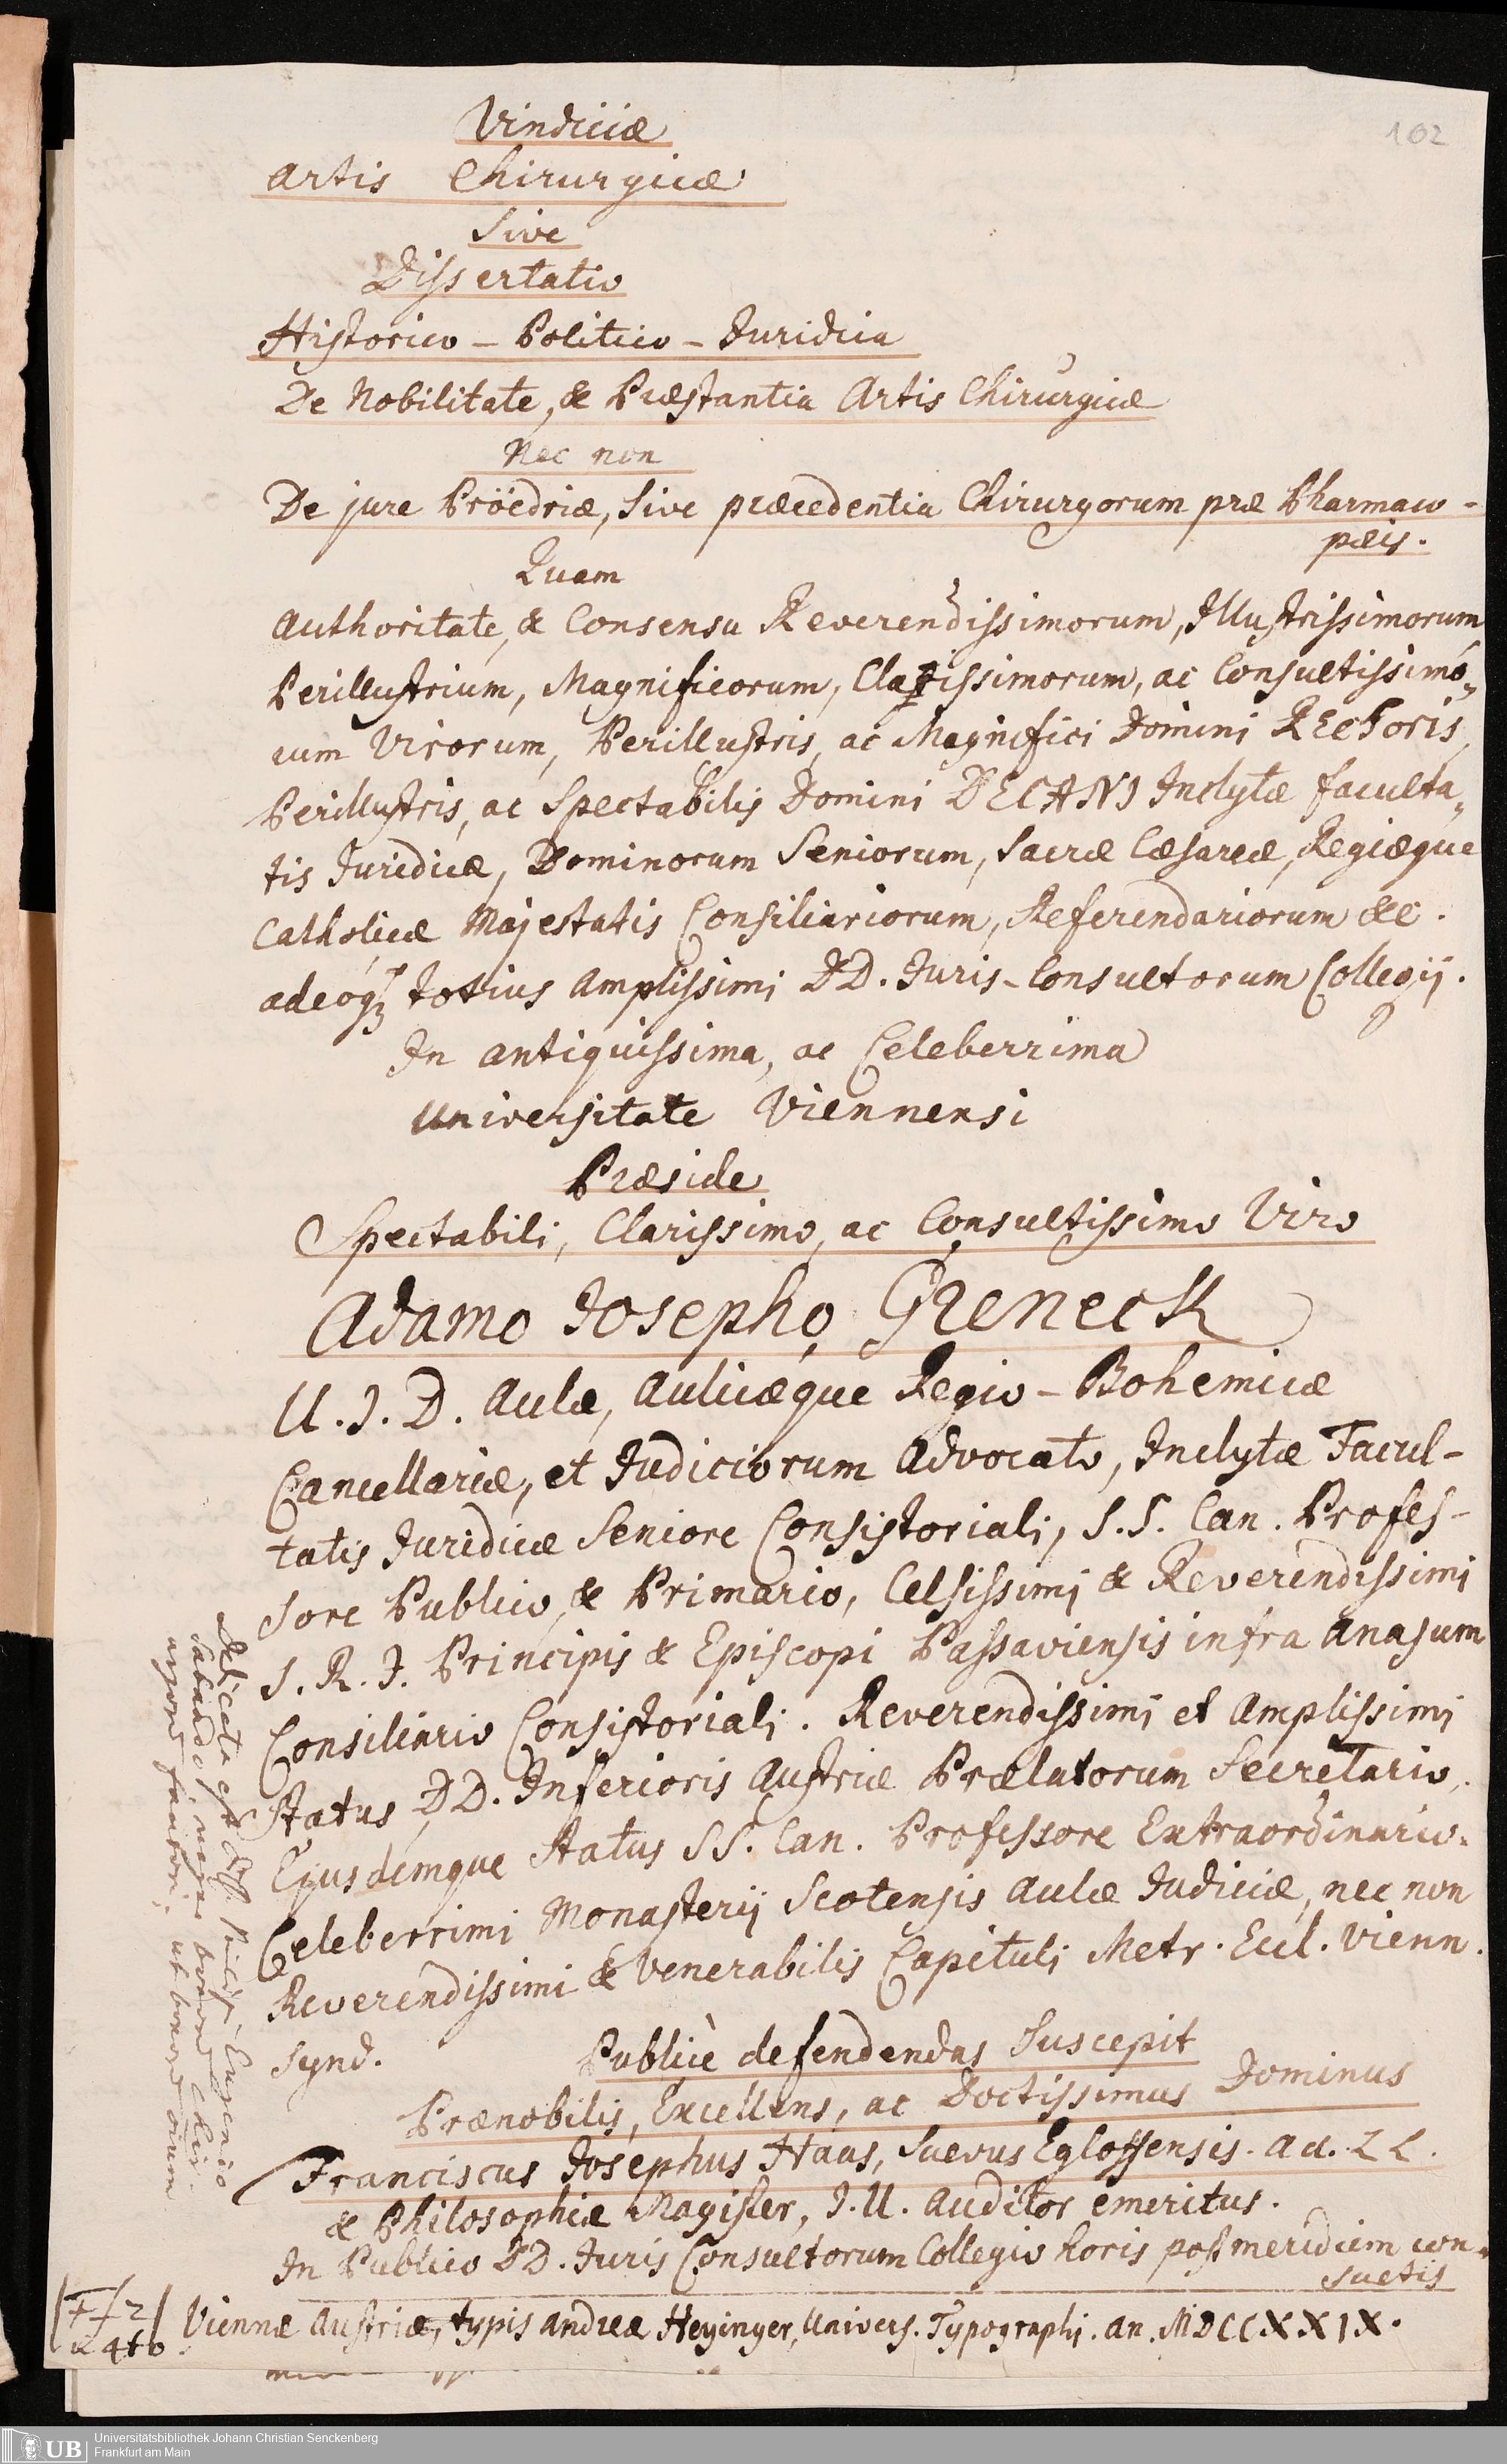 102
Vindiciæ
Artis Chirurgicæ
Sive
Dissertatio
Historico - Politico - Juridica
De Nobilitate, & Præstantia Artis Chirurgicæ
Nec non
De jure Pröedriæ, Sive præcedentia Chirurgorum præ Pharmaco-
pæis.
Quam
Authoritate, & Consensu Reverendissimorum, Illustrissimorum
Perillustrium, Magnificorum, Clarissimorum, ac Consultissimo„
rum Virorum, Perillustris, ac Magnifici Domini RECToris,
Perillustris, ac Spectabilis Domini DECANI Inclytæ faculta„
tis Juridicæ, Dominorum Seniorum, Sacræ Cæsareæ, Regiæque
Catholicæ Majestatis Consiliariorum, Referendariorum &c.
adeoq3 totius Amplissimi DD. Juris-Consultorum Collegij.
In antiquissima, ac Celeberrima
Universitate Viennensi
Præside
Spectabili, Clarissimo, ac Consultissimo Viro
Adamo Josepho Greneck
U. J. D. Aulæ, Aulicæque Regio - Bohemicæ
Cancellariæ, et Judiciorum Advocato, Inclytæ Facul-
tatis Juridicæ Seniore Consistoriali, S.S. Can. Profes-
sore Publico, & Primario, Celsissimi & Reverendissimi
S. R. J. Principis & Episcopi Passaviensis infra Anasum
Consiliario Consistoriali. Reverendissimi et Amplissimi
Status DD. Inferioris Austriæ Prælatorum Secretario,
Ejusdemque Status SS. Can. Professore Extraordinario.
Celeberrimi Monasterij Scotensis Aulæ Judiciæ, nec non
Reverendissimi & Venerabilis Capituli Metr. Eccl. Vienn.
Synd.
Publicè defendendas Suscepit
Prænobilis, Excellens, ac Doctissimus Dominus
Franciscus Josephus Haas, Suevus Egloffensis. AA. LL.
& Philosophiæ Magister, J. U. Auditor emeritus.
In Publico DD. Juris Consultorum Collegio horis postmeridiem con-
suetis
Viennæ Austriæ, typis Andreæ Heyinger, Univers. Typographi. An. MDCCXXIX.
in 4to.
Dedicata est Diss. Eugenio
Sabaudo,
UB
Universitätsbibliothek Johann Christian Senckenberg
Frankfurt am Main